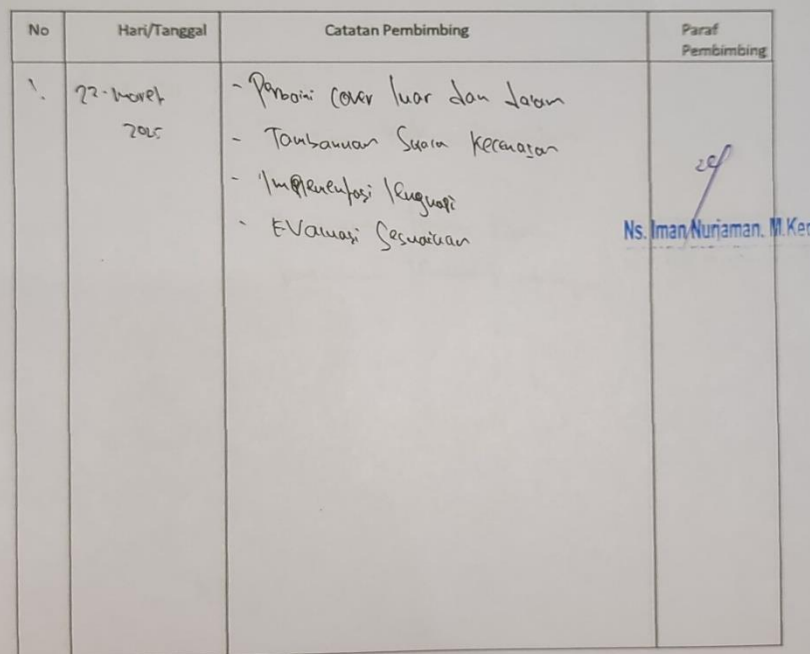 No Hari/Tanggal Catatan Pembimbing Paraf Pembimbing
1. 22-Maret 2025
- Perbaiki cover luar dan dalam
- Tambahkan Suara Kecemasan
- Implementasi lengkapi
- Evaluasi Sesuaikan
Ns. Iman Nurjaman. M.Kep